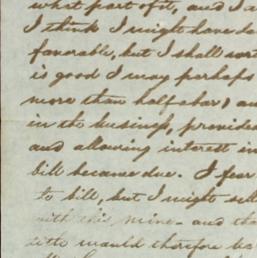 what part of it, and I a
I think I might have do
favorable, but I shall wor
is good I may perhaps
more than half a bar, an
in the business, provide
and allowing interest in
bill became due. I fear
to bill, but I might sell
with this mine - and tha
would therefore be